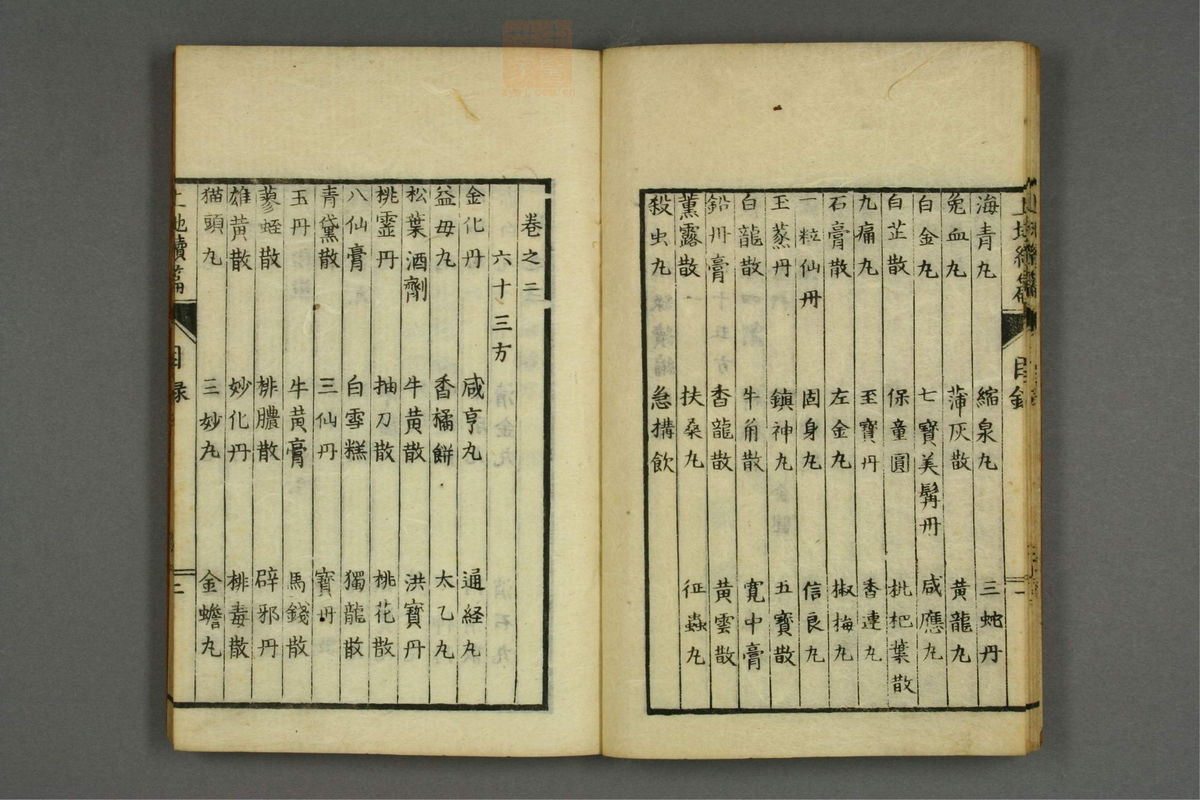 海青丸 縮泉丸 三蛇丹
兔血丸 蒲灰散 黃龍丸
白金丸 七寶美髯丹 咸應丸
白芷散 保童圓 枇杷葉散
九痛丸 至寶丹 香連丸
石膏散 左金丸 椒梅丸
一粒仙丹 固身丸 信良丸
玉蒸丹 鎮神丸 五寶散
白龍散 牛角散 寬中膏
鉛丹膏 香龍散 黃雲散
薫露散 扶桑丸 征蟲丸
殺虫丸 急搆飲
卷之二
六十三方
金化丹 咸亨丸 通経丸
益母丸 香橘餅 太乙丸
松葉酒劑 牛黄散 洪寶丹
桃霊丹 抽刀散 桃花散
八仙膏 白雪糕 獨龍散
青黛散 三仙丹 寶丹
玉丹 牛黄膏 馬錢散
蓼蛭散 排膿散 辟邪丹
雄黄散 妙化丹 排毒散
猫頭丸 三妙丸 金蟾丸
目録